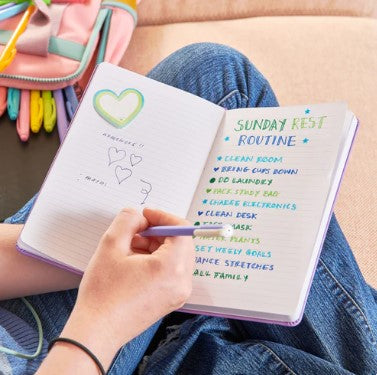 REMEMBER!!
SUNDAY REST
ROUTINE
CLEAN ROOM
BRING CUPS DOWN
DO LAUNDRY
PACK STUDY BAG
CHARGE ELECTRONICS
CLEAN DESK
FACE MASK
WATER PLANTS
SET WEEKLY GOALS
DANCE STRETCHES
CALL FAMILY